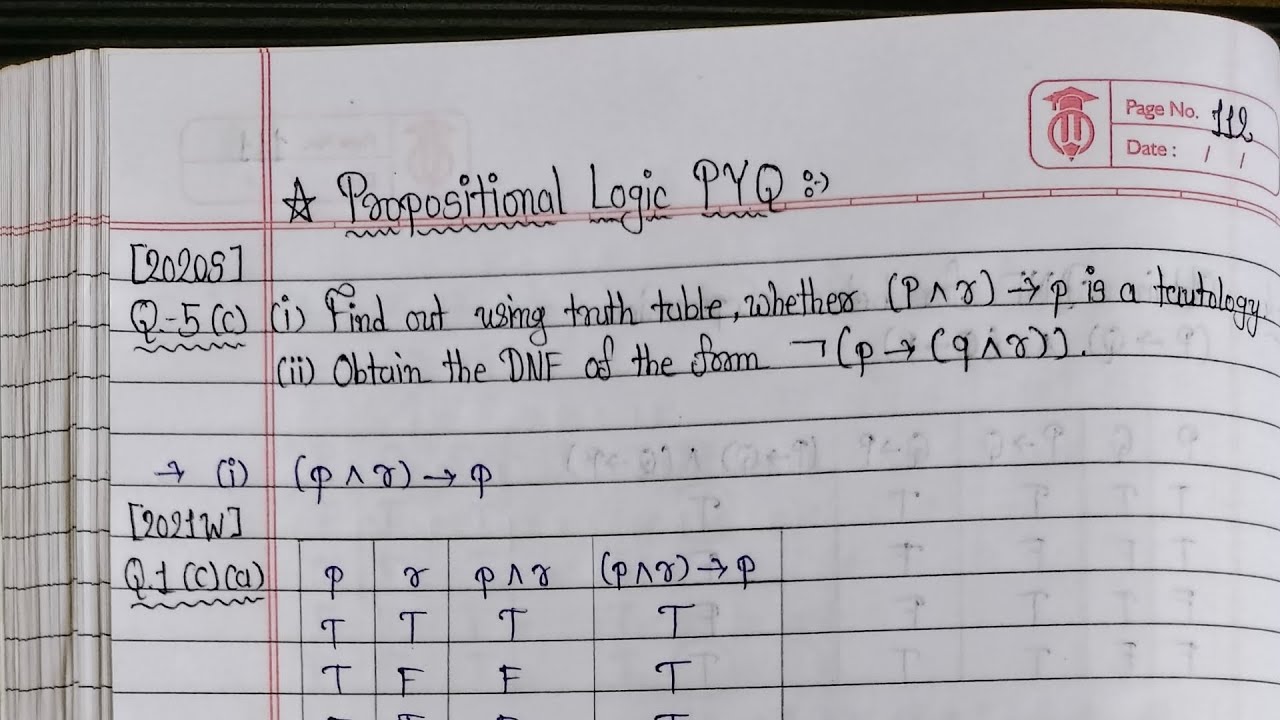 Page No. 112
Date : / /
☆ Propositional Logic PYQ :-)
[2020S]
Q.-5(c) (i) Find out using truth table, whether (P∧r) → p is a tautology.
(ii) Obtain the DNF of the form ¬(p → (q∧r)).
→ (i) (p∧r) → p
[2021W]
Q.1(c)(a) p r p∧r (p∧r) → p
T T T T
T F F T